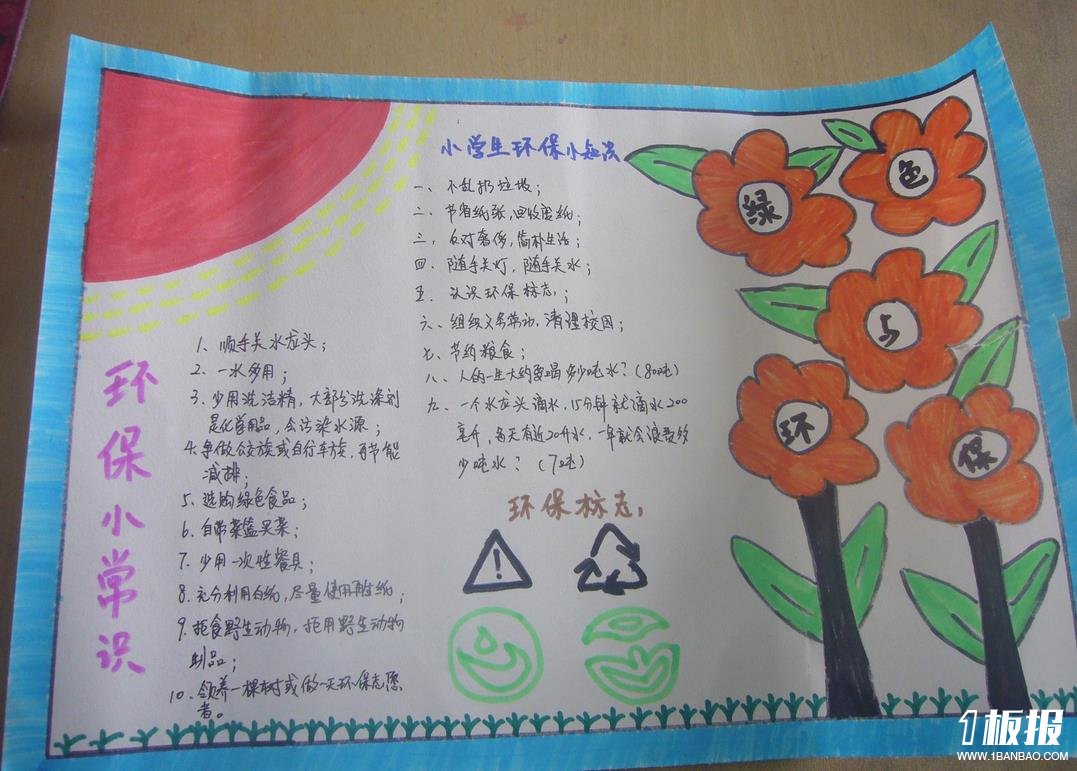 环保小常识
1、顺手关水龙头；
2、一水多用；
3、少用洗洁精，大部分洗涤剂
是化学用品，会污染水源；
4、争做公交族或自行车族，再节能
减排；
5、选购绿色食品；
6、自带菜篮买菜；
7、少用一次性餐具；
8、充分利用白纸，尽量使用再生纸；
9、拒食野生动物，拒用野生动物
制品；
10、领养一棵树或做一天环保志愿
者。
小学生环保小知识
一、不乱扔垃圾；
二、节省纸张，回收废纸；
三、反对奢侈，简朴生活；
四、随手关灯，随手关水；
五、认识环保标志；
六、组织义务劳动，清理校园；
七、节约粮食；
八、人的一生大约要喝多少吨水？（80吨）
九、一个水龙头滴水，15分钟就滴水200
毫升，每天有近20升水，一年就会浪费多
少吨水？（7吨）
环保标志
!
绿
色
与
环
保
1板报
WWW.1BANBAO.COM